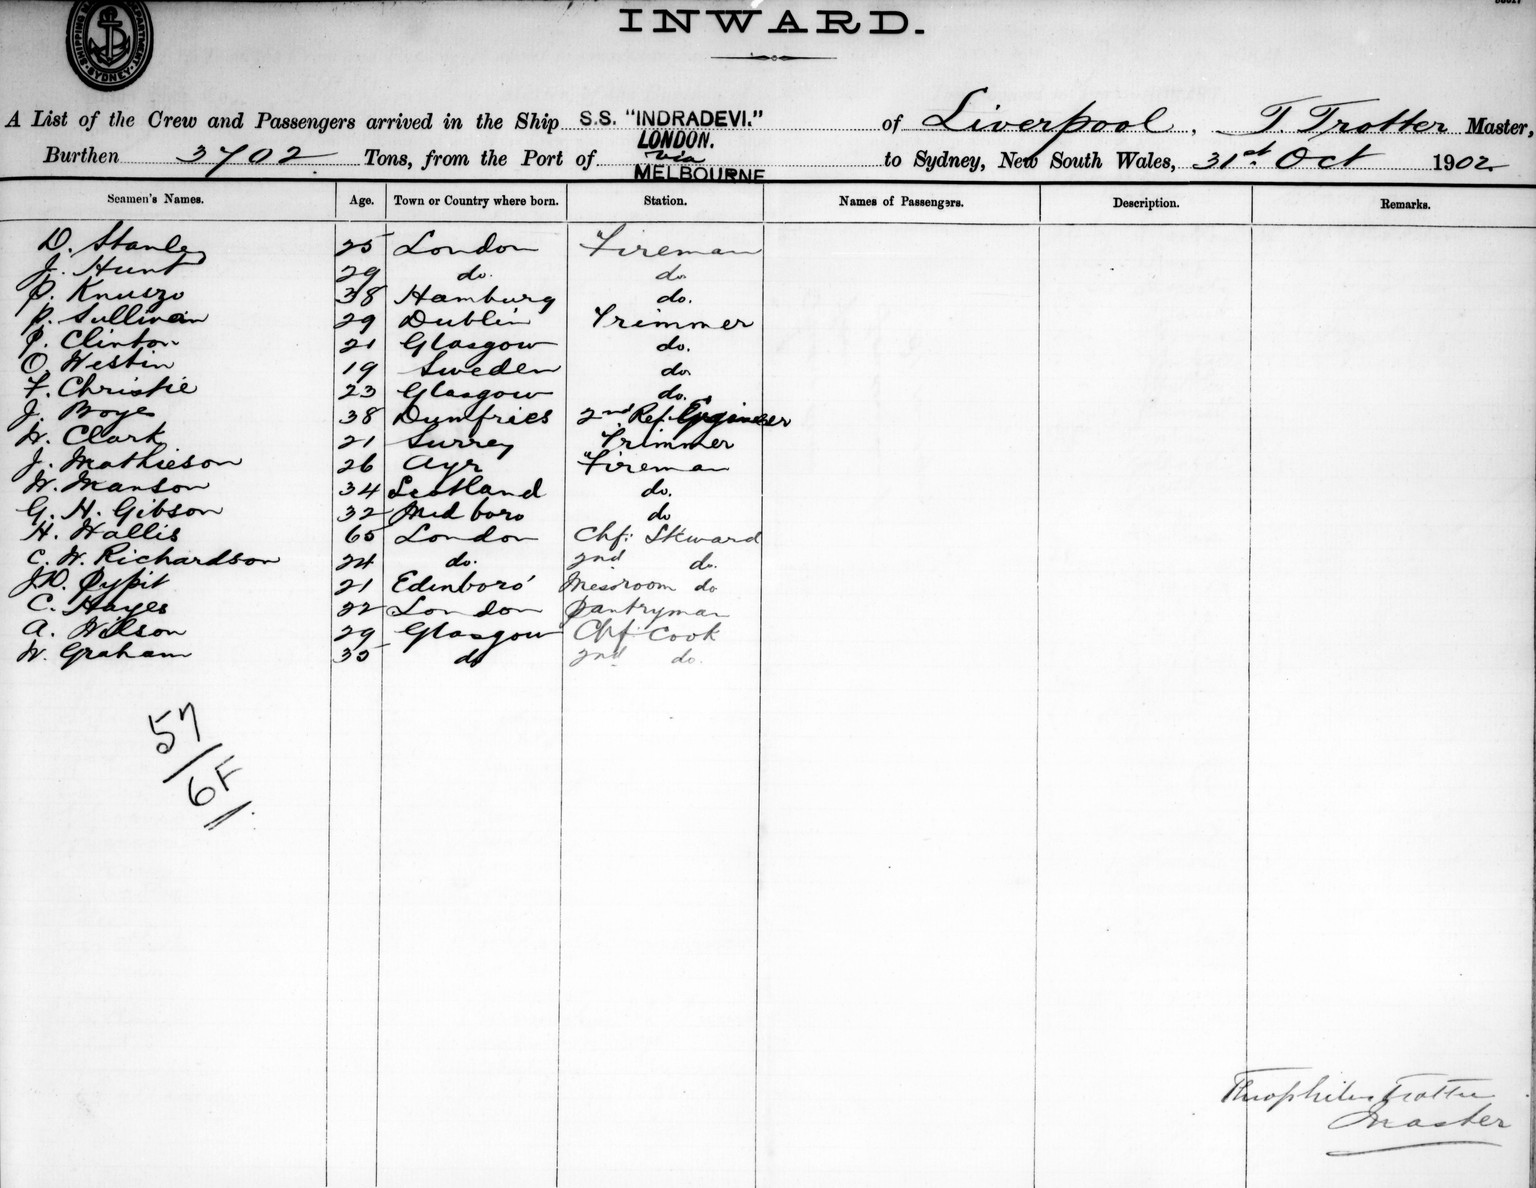 INWARD.
A List of the Crew and Passengers arrived in the Ship S.S. "INDRADEVI." of Liverpool, T. Trotter Master,
Burthen 3702 Tons, from the Port of LONDON. via MELBOURNE to Sydney, New South Wales, 31st Oct 1902
Seamen's Names. Age. Town or Country where born. Station. Names of Passengers. Description. Remarks.
D. Stanley 25 London Fireman
J. Hunt 29 do. do
P. 38 Hamburg do.
P. Sullivan 29 Dublin Trimmer
P. Clinton 21 Glasgow do.
O. Westin 19 Sweden do
F. Christie 23 Glasgow do.
J. Boyes 38 Dumfries 2nd Ref. Engineer
W. Clark 21 Surrey Trimmer
J. Mathieson 26 Ayr Fireman
W. Manson 34 Scotland do.
G. H. Gibson 32 Mid boro do
H. Wallis 60 London Chf: Steward
C. W. Richardson 24 do. 2nd do.
21 Edinboro' Messroom do
C. Hayes 22 London Pantryman
A. Wilson 29 Glasgow Chf. Cook
W. Graham 35 do 2nd do.
57
6F
Theophilus Trotter
Master